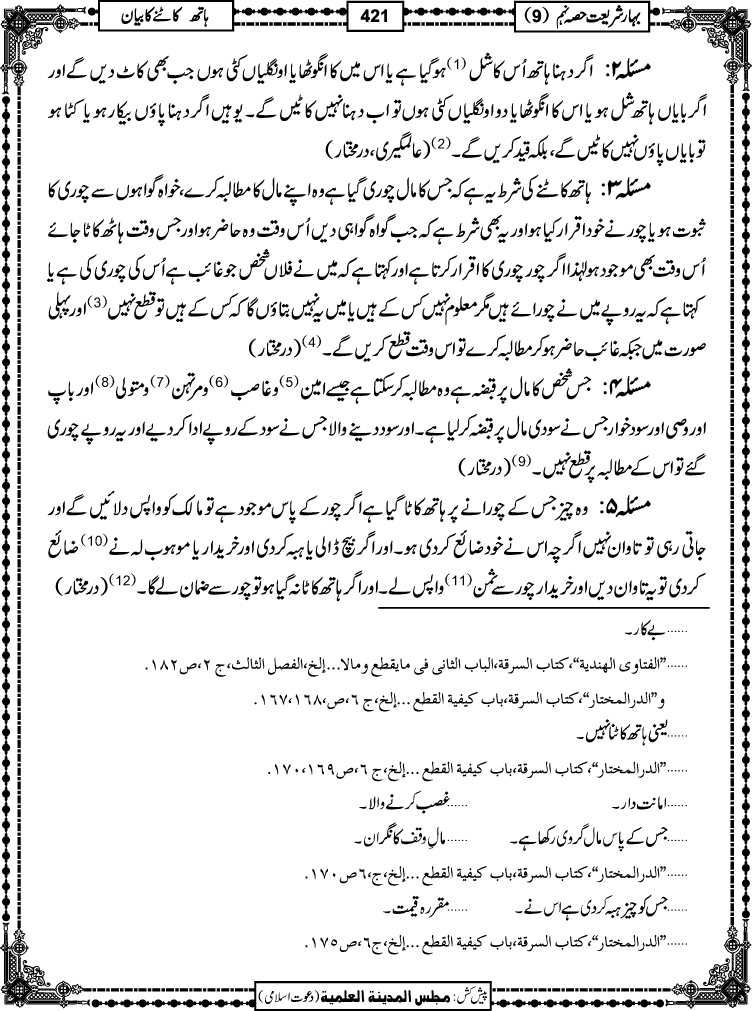 بہارشریعت حصہ نہم (9)
421
ہاتھ کاٹنے کا بیان
مسئلہ ۲: اگر دہنا ہاتھ اُس کا شل (1) ہوگیا ہے یا اس میں کا انگوٹھا یا اونگلیاں کٹی ہوں جب بھی کاٹ دیں گے اور
اگر بایاں ہاتھ شل ہو یا اس کا انگوٹھا یا دو اونگلیاں کٹی ہوں تو اب دہنا نہیں کاٹیں گے۔ یوہیں اگر دہنا پاؤں بیکار ہو یا کٹا ہو
تو بایاں پاؤں نہیں کاٹیں گے، بلکہ قید کریں گے۔ (2) (عالمگیری، درمختار)
مسئلہ ۳: ہاتھ کاٹنے کی شرط یہ ہے کہ جس کا مال چوری گیا ہے وہ اپنے مال کا مطالبہ کرے، خواہ گواہوں سے چوری کا
ثبوت ہو یا چور نے خود اقرار کیا ہو اور یہ بھی شرط ہے کہ جب گواہ گواہی دیں اُس وقت وہ حاضر ہو اور جس وقت ہاتھ کاٹا جائے
اُس وقت بھی موجود ہو لہٰذا اگر چور چوری کا اقرار کرتا ہے اور کہتا ہے کہ میں نے فلاں شخص جو غائب ہے اُس کی چوری کی ہے یا
کہتا ہے کہ یہ روپے میں نے چورائے ہیں مگر معلوم نہیں کس کے ہیں یا میں یہ نہیں بتاؤں گا کہ کس کے ہیں تو قطع نہیں (3) اور پہلی
صورت میں جبکہ غائب حاضر ہو کر مطالبہ کرے تو اس وقت قطع کریں گے۔ (4) (درمختار)
مسئلہ ۴: جس شخص کا مال پر قبضہ ہے وہ مطالبہ کر سکتا ہے جیسے امین (5) و غاصب (6) و مرتہن (7) و متولی (8) اور باپ
اور وصی اور سود خوار جس نے سودی مال پر قبضہ کر لیا ہے۔ اور سود دینے والا جس نے سود کے روپے ادا کر دیے اور یہ روپے چوری
گئے تو اس کے مطالبہ پر قطع نہیں۔ (9) (درمختار)
مسئلہ ۵: وہ چیز جس کے چورانے پر ہاتھ کاٹا گیا ہے اگر چور کے پاس موجود ہے تو مالک کو واپس دلائیں گے اور
جاتی رہی تو تاوان نہیں اگرچہ اس نے خود ضائع کردی ہو۔ اور اگر بیچ ڈالی یا ہبہ کردی اور خریدار یا موہوب لہ نے (10) ضائع
کردی تو یہ تاوان دیں اور خریدار چور سے ثمن (11) واپس لے۔ اور اگر ہاتھ کاٹا نہ گیا ہو تو چور سے ضمان لے گا۔ (12) (درمختار)
......بے کار۔
......”الفتاوی الهندية“، كتاب السرقة، الباب الثانی فی مايقطع ومالا...إلخ، الفصل الثالث، ج ۲، ص ۱۸۲.
و ”الدرالمختار“، كتاب السرقة، باب كيفية القطع ...إلخ، ج ۶، ص، ۱۶۷،۱۶۸.
......یعنی ہاتھ کاٹنا نہیں۔
......”الدرالمختار“، كتاب السرقة، باب كيفية القطع ...إلخ، ج ۶، ص ۱۷۰،۱۶۹.
......امانت دار۔ ......غصب کرنے والا۔
......جس کے پاس مال گروی رکھا ہے۔ ......مالِ وقف کا نگران۔
......”الدرالمختار“، كتاب السرقة، باب كيفية القطع ...إلخ، ج، ۶ ص ۱۷۰.
......جس کو چیز ہبہ کردی ہے اس نے۔ ......مقررہ قیمت۔
......”الدرالمختار“، كتاب السرقة، باب كيفية القطع ...إلخ، ج۶، ص ۱۷۵.
پیش کش: مجلس المدینة العلمیة (دعوت اسلامی)